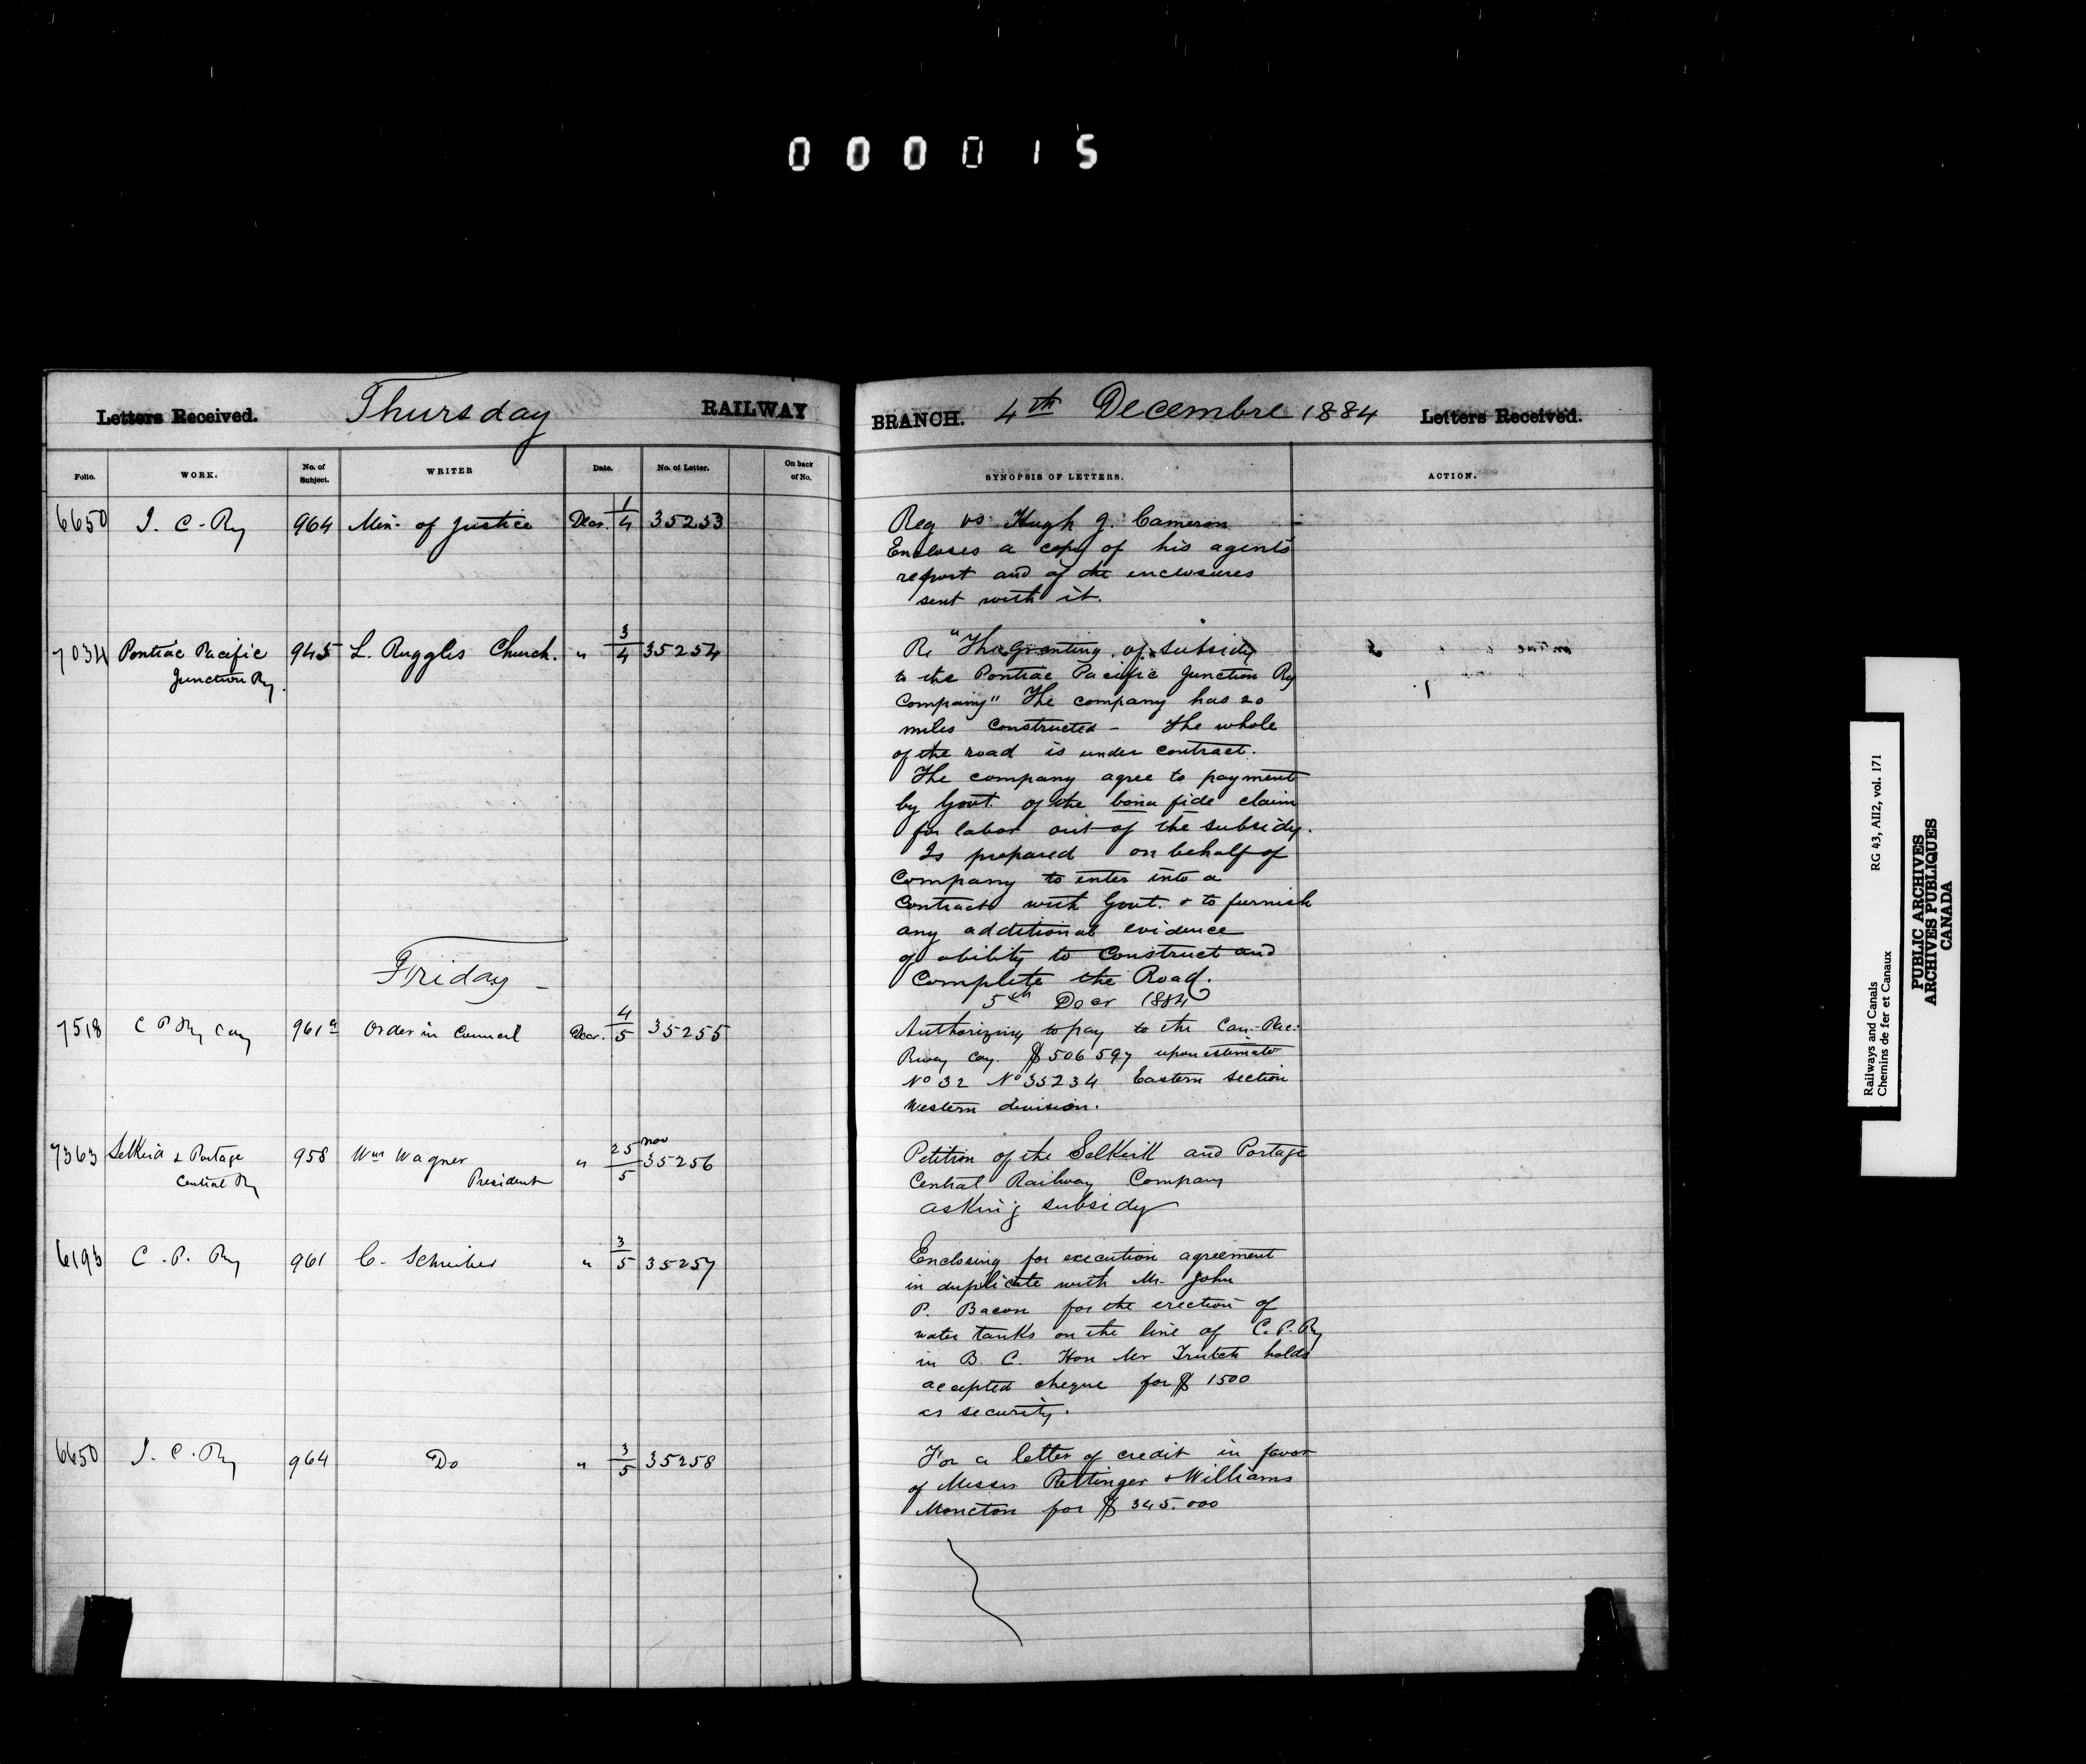 000015
Letters Received. Thursday RAILWAY BRANCH. 4th Decembre 1884 Letters Received.
Folio. WORK. No. of Subject. WRITER Date. No. of Letter. On back of No. SYNOPSIS OF LETTERS. ACTION.
6650 I. C. Ry 964 Min. of Justice Decr. 1/4 35253
Reg vs Hugh J. Cameron
Encloses a copy of his agents
report and of the enclosures
sent with it.
7034 Pontiac Pacific 945 L. Ruggles Church. " 3/4 35254
Junction Ry.
Re "The granting of subsidy
to the Pontiac Pacific Junction Ry
Company" The company has 20
miles constructed - The whole
of the road is under contract.
The company agree to payment
by Govt. of the bona fide claim
for labor out of the subsidy.
Is prepared on behalf of
Company to enter into a
Contract with Govt. & to furnish
any additional evidence
of ability to Construct and
Complete the Road.
Friday - 5th Decr 1884
7518 C P Ry Coy 961a Order in Council Decr. 4/5 35255
Authorizing to pay to the Can. Pac.
Rway Coy. $506597 upon estimate
No 32 No 35234 Eastern section
Western division.
7363 Selkirk & Portage 958 Wm Wagner " 25 nov/5 35256
Central Ry President
Petition of the Selkirk and Portage
Central Railway Company
asking subsidy
6193 C. P. Ry 961 C. Schreiber " 3/5 35257
Enclosing for execution agreement
in duplicate with Mr. John
P. Bacon for the erection of
water tanks on the line of C. P. Ry
in B. C. Hon Mr Trutch holds
accepted cheque for $1500
as security.
6650 I. C. Ry 964 Do " 3/5 35258
For a letter of credit in favor
of Messrs Rettinger & Williams
Moncton for $345.000
Railways and Canals RG 43, AII2, vol. 171
Chemins de fer et Canaux
PUBLIC ARCHIVES
ARCHIVES PUBLIQUES
CANADA